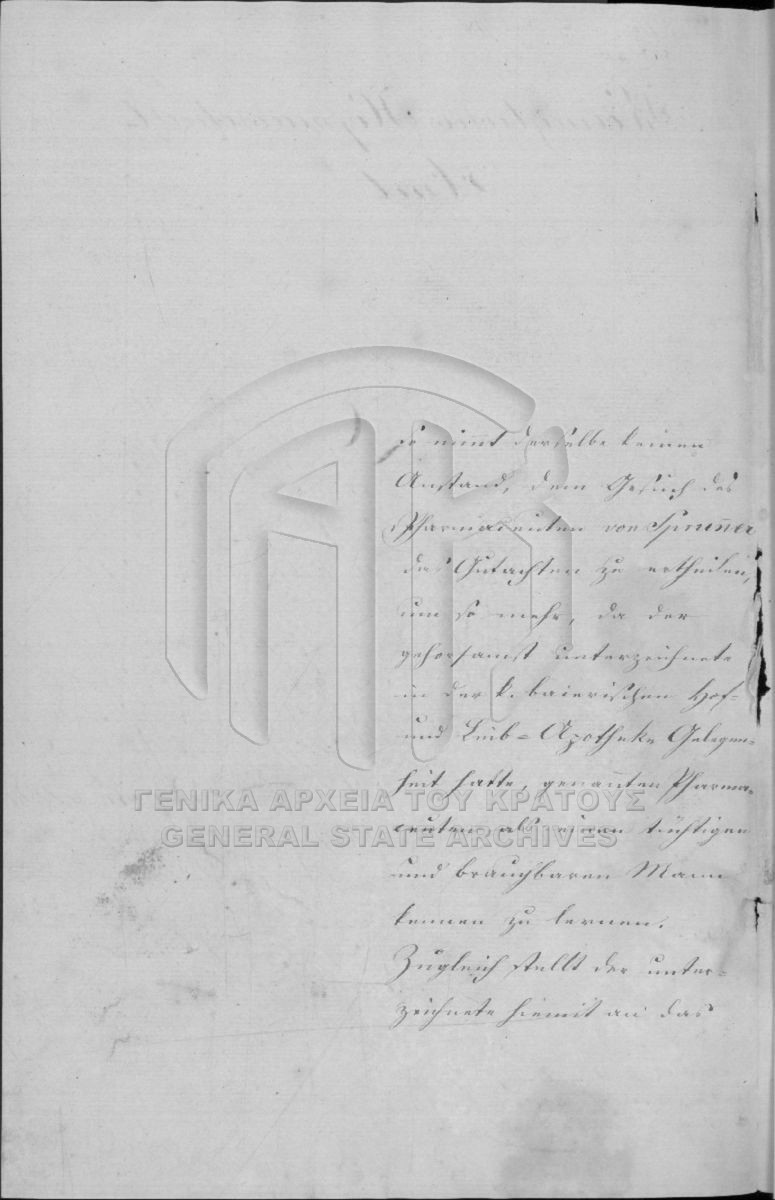 so nimmt derselbe keinen
Anstand, dem Gesuch des
Pharmaceuten von Spruner
das Gutachten zu ertheilen,
um so mehr, da der
gehorsamst unterzeichnete
in der k. baierischen Hof-
und Leib-Apotheke Gelegen-
heit hatte, genannten Pharma-
ceuten als einen tüchtigen
und brauchbaren Mann
kennen zu lernen.
Zugleich stellt der unter-
zeichnete hiemit an das
ΓΕΝΙΚΑ ΑΡΧΕΙΑ ΤΟΥ ΚΡΑΤΟΥΣ
GENERAL STATE ARCHIVES